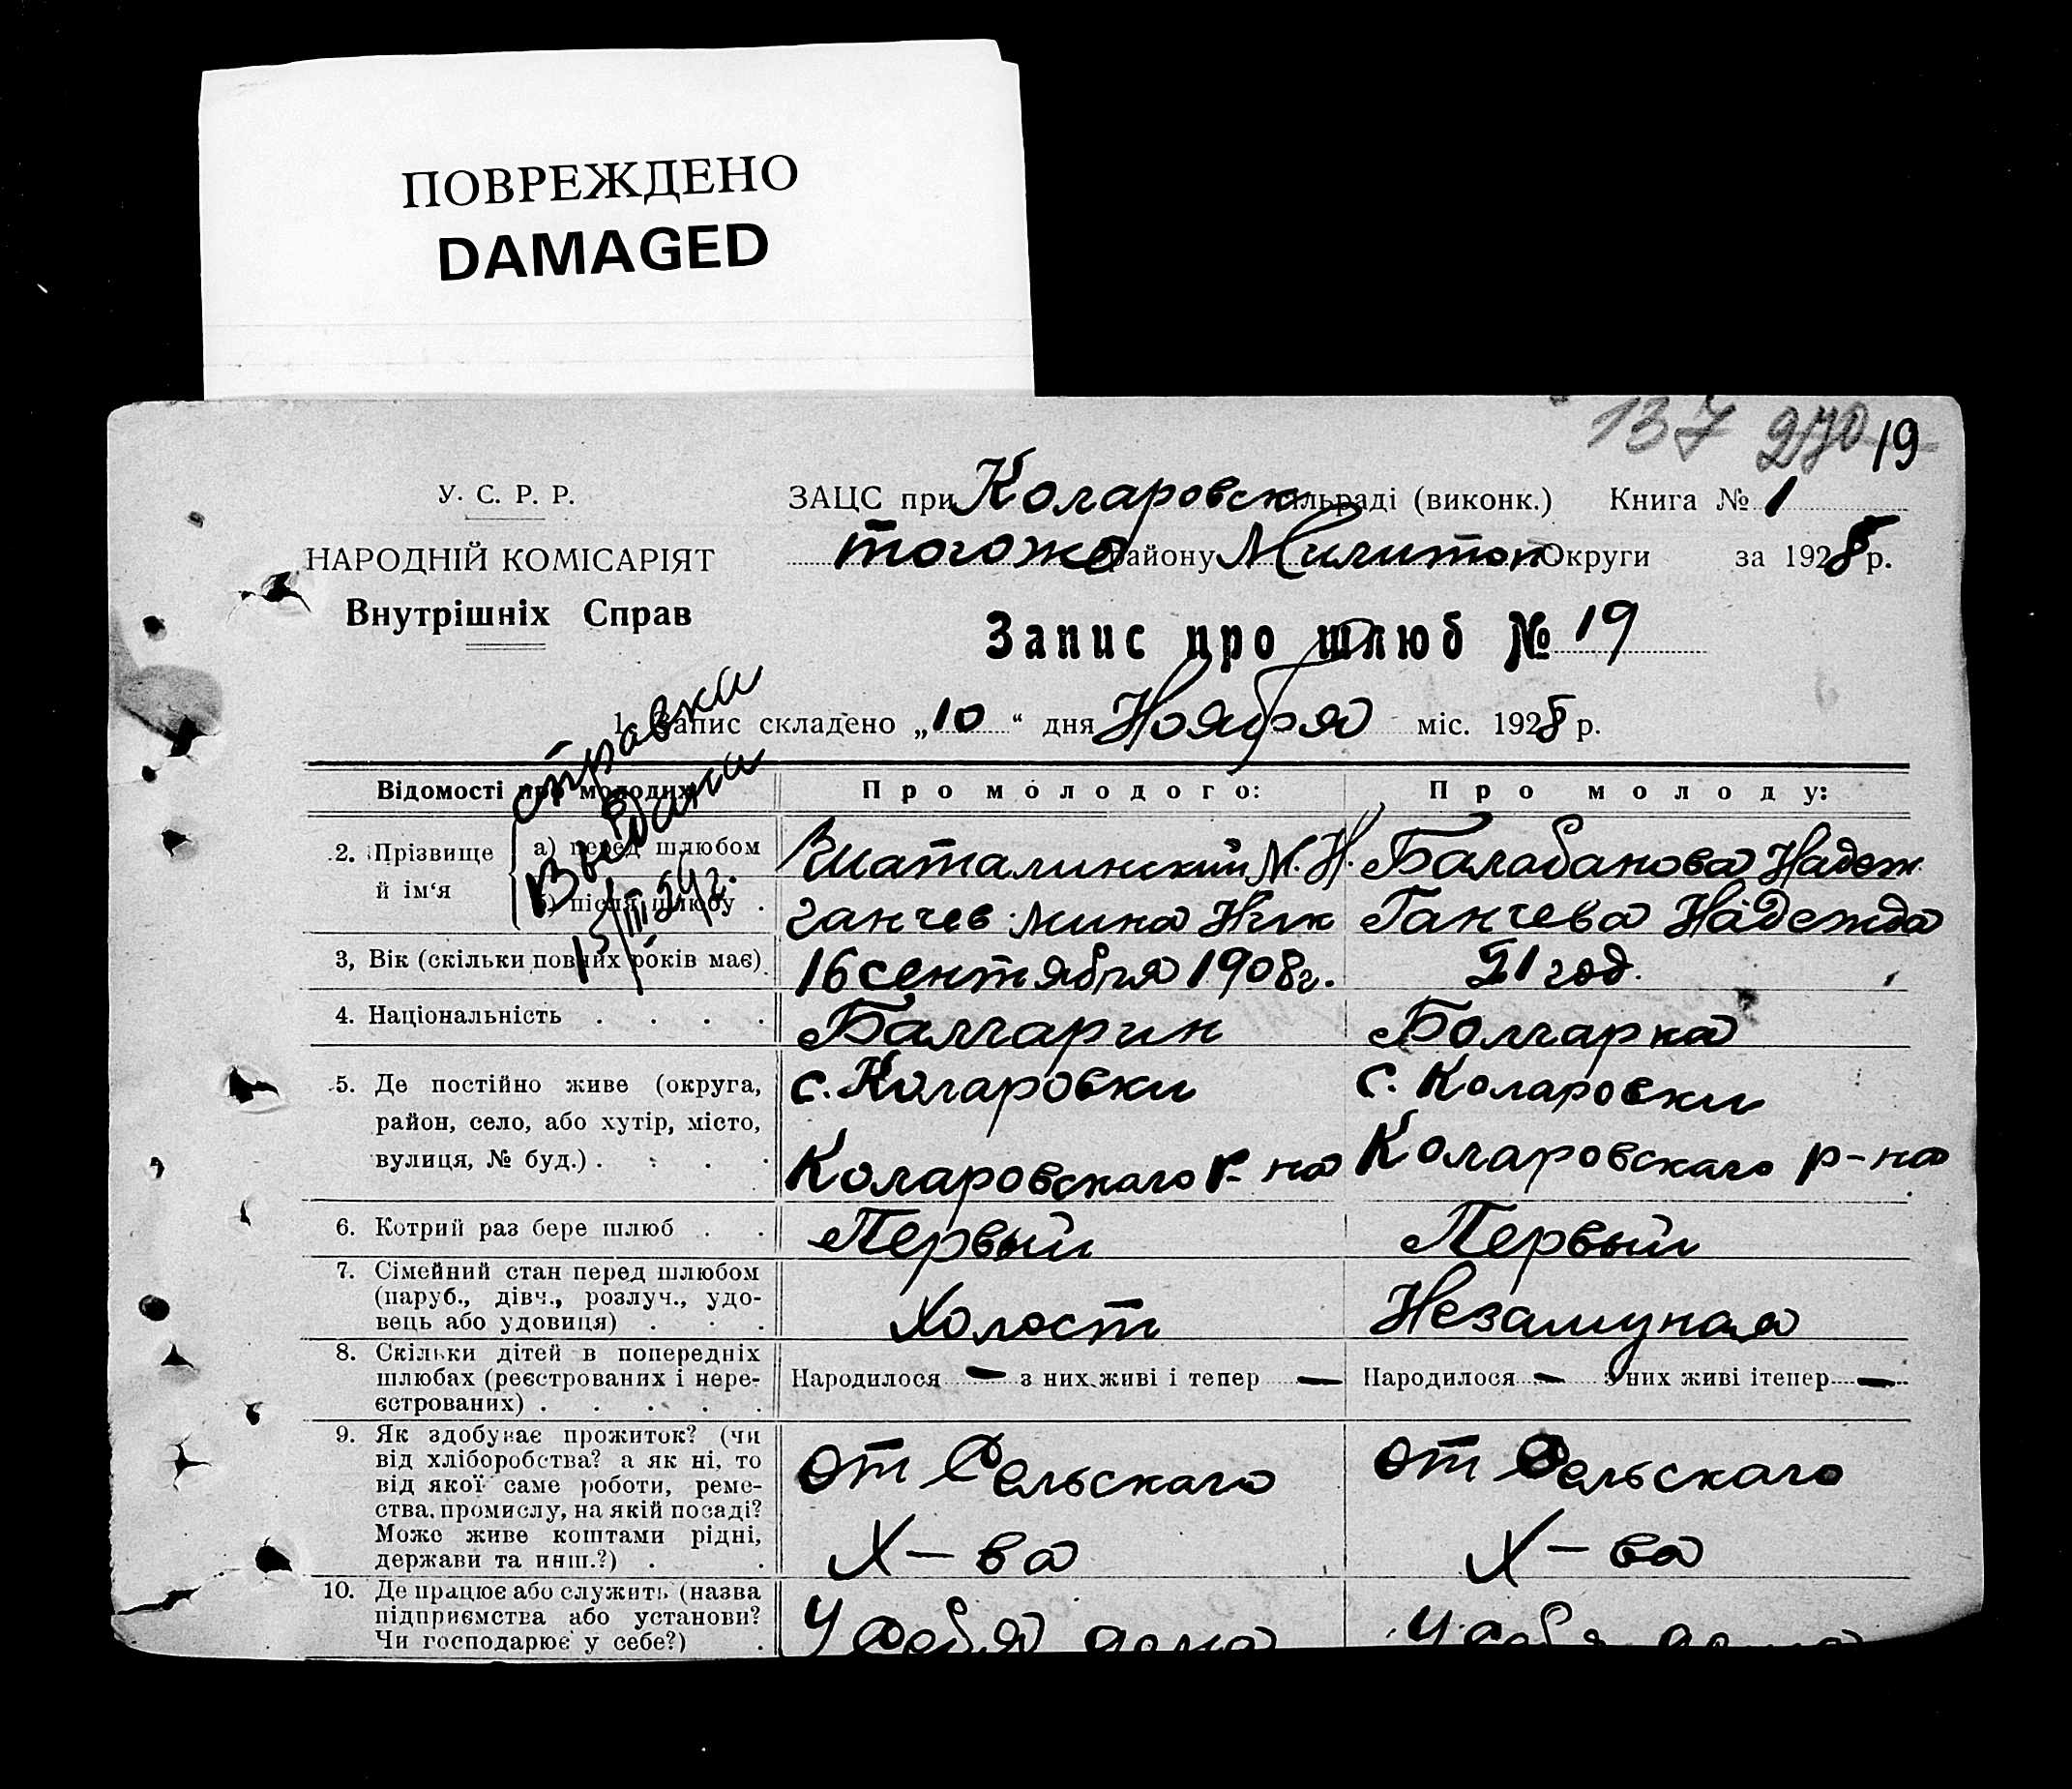 ПОВРЕЖДЕНО
DAMAGED
137 270 19
У. С. Р. Р.
НАРОДНІЙ КОМІСАРІЯТ
Внутрішніх Справ
ЗАЦС при Коларовск сільраді (виконк.) Книга № 1
тогожо району Милитоп Округи за 1928 р.
Запис про шлюб № 19
1. Запис складено „10“ дня Ноября міс. 1928 р.
справка
Выдана
15/III 29 г.
Відомості про молодих Про молодого: Про молоду:
2. Прізвище й ім‘я
а) перед шлюбом М. Н. Балабанова Надеж
б) після шлюбу . ганчев мина Ник Ганчева Надежда
3, Вік (скільки повних років має) 16 сентября 1908 г. 21 год.
4. Національність . . . . Балгарин Болгарка
5. Де постійно живе (округа, район, село, або хутір, місто, вулиця, № буд.) . . . .
с. Коларовки с. Коларовки
Коларовскаго р-на Коларовскаго р-на
6. Котрий раз бере шлюб . . Первый Первый
7. Сімейний стан перед шлюбом
(паруб., дівч., розлуч., удо-
вець або удовиця) . . . Холост Незамуная
8. Скільки дітей в попередніх
шлюбах (реєстрованих і нере-
єстрованих) . . . . .
Народилося — з них живі і тепер — Народилося — з них живі ітепер —
9. Як здобуває прожиток? (чи
від хліборобства? а як ні, то
від якої саме роботи, реме-
ства, промислу, на якій посаді?
Може живе коштами рідні,
держави та инш.?) . .
от Сельскаго от Сельскаго
Х-ва Х-ва
10. Де працює або служить (назва
підприємства або установи?
Чи господарює у себе?) .
У себя дома У себя дома